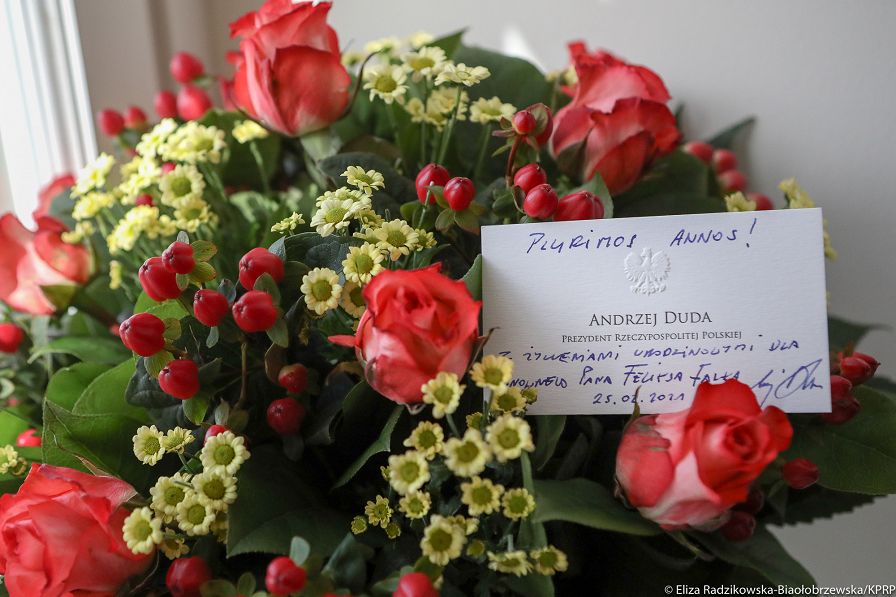 PLURIMOS ANNOS!
ANDRZEJ DUDA
PREZYDENT RZECZYPOSPOLITEJ POLSKIEJ
Z ŻYCZENIAMI URODZINOWYMI DLA
PANA FELIKSA FALKA
25.02.2021
© Eliza Radzikowska-Białobrzewska/KPRP